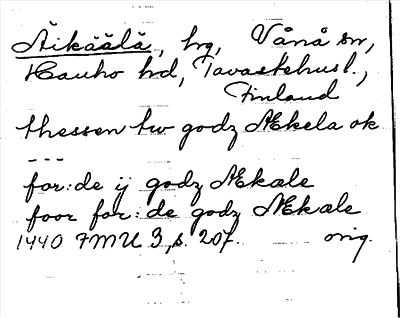 Äikäälä, hg, Vånå sn,
Hauho hd, Tavastehusl.,
Finland
thessen tw godz Ækela ok
---
for:de ij godz Ækale
foor for:de godz Ækale
1440 FMU 3, s. 207. orig.